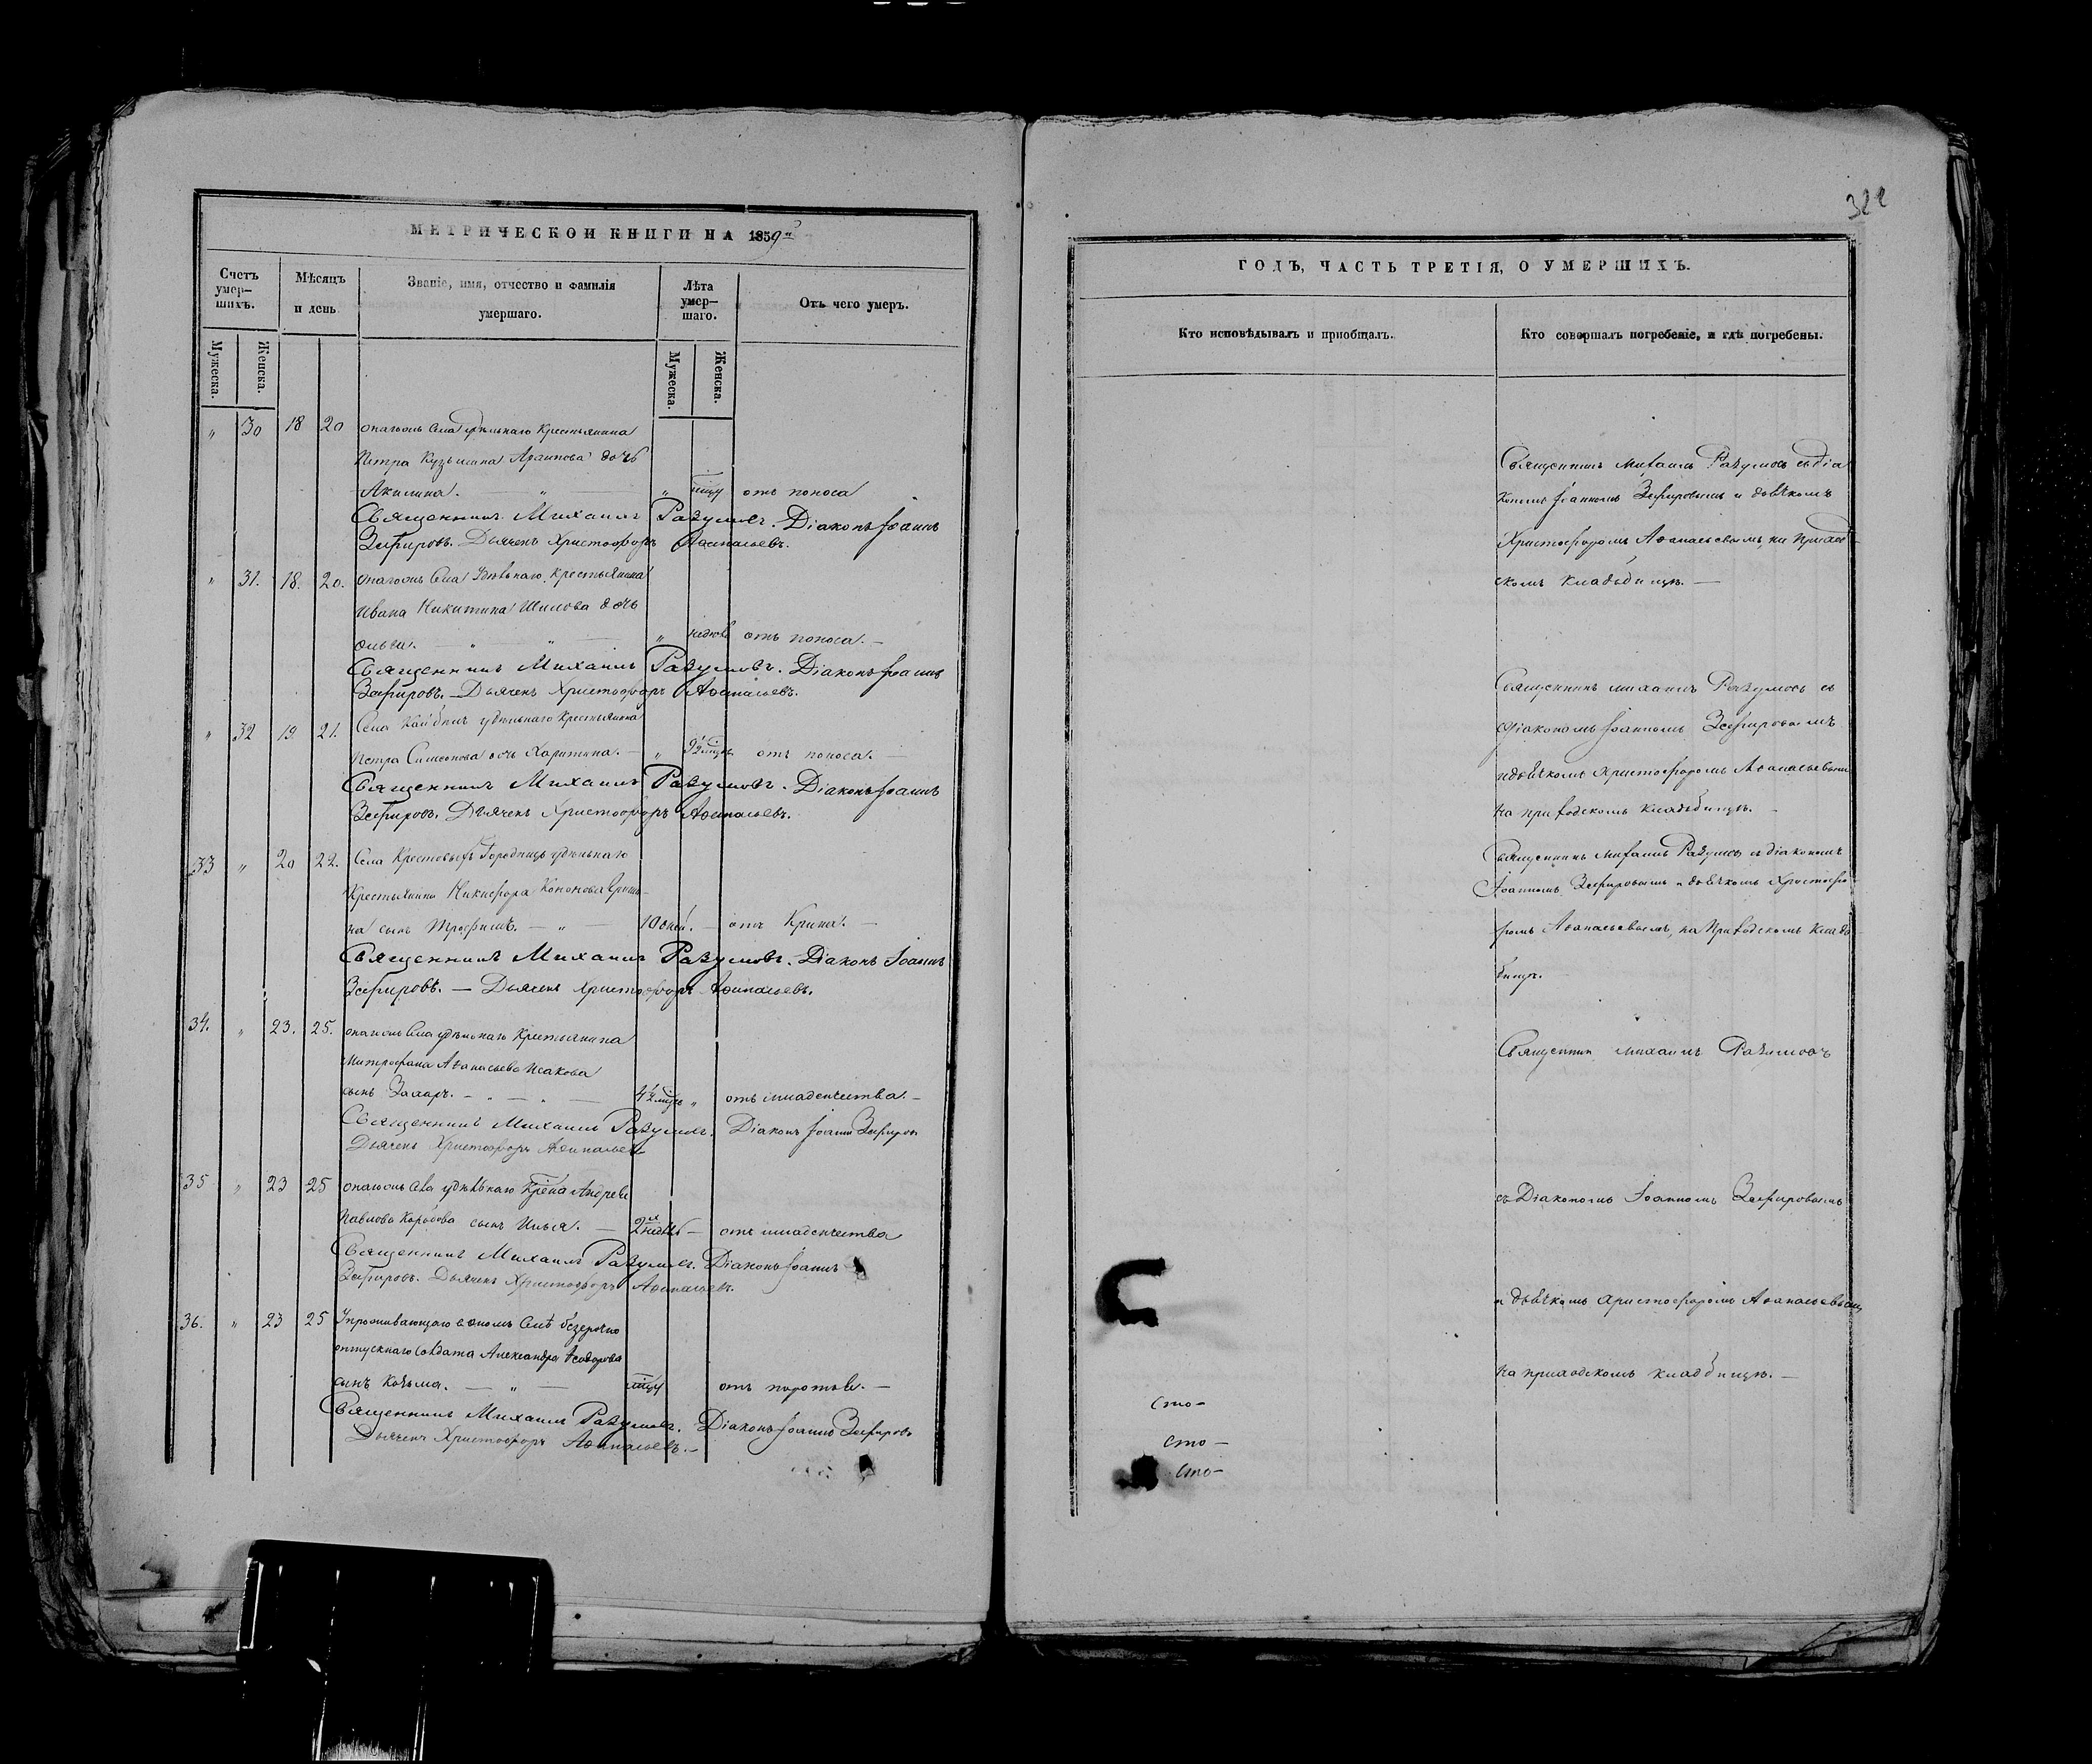 МЕТРИЧЕСКОЙ КНИГИ НА 1859й
Счетъ умер-шихъ.
Мѣсяцъ и день
Званіе, имя, отчество и фамилія умершаго.
Лѣта умер-шаго.
Отъ чего умеръ.
Мужеска.
Женска.
Мужеска.
Женска.
„ 30 18 20 онагожъ села удѣльнаго крестьянина
Петра Кузьмина дочь
Акилина. „ „ отъ поноса
Священникъ Михаилъ Разумовъ. Діаконъ Іоаннъ
Зефировъ. Дьячекъ Христофоръ Аѳанасьевъ.
„ 31. 18. 20. онагожъ села удѣльнаго крестьянина
Ивана Никитина Шилова дочь
Ольга. „ „ „ отъ поноса. –
Священникъ Михаилъ Разумовъ. Діаконъ Іоаннъ
Зефировъ. – Дьячекъ Христофоръ Аѳанасьевъ.
„ 32 19 21. Села удѣльнаго крестьянина
Петра Симеонова дочь Харитина. – „ 9½ мцъ отъ поноса. –
Священникъ Михаилъ Разумовъ. Діаконъ Іоаннъ
Зефировъ. Дьячекъ Христофоръ Аѳанасьевъ.
33 „ 20 22. Села Крестовыхъ Городищъ удѣльнаго
крестьянина Никифора Кононова
на сынъ Трофимъ. – „ – 10 дней. – отъ Крика. –
Священникъ Михаилъ Разумовъ. – Діаконъ Іоаннъ
Зефировъ. – Дьячекъ Христофоръ Аѳанасьевъ.
34. „ 23. 25. онагожъ села удѣльнаго крестьянина
Митрофана Аѳанасьева Исакова
сынъ Захаръ. – „ – „ – 4½ мцъ „ отъ младенчества. –
Священникъ Михаилъ Разумовъ. Діаконъ Іоаннъ Зефировъ
Дьячекъ Христофоръ Аѳанасьевъ
35 „ 23 25 онагожъ села удѣльнаго Крена Андрея
Павлова сынъ Илья. – 2 – отъ младенчества
Священникъ Михаилъ Разумовъ. Діаконъ Іоаннъ
Зефировъ. Дьячекъ Христофоръ Аѳанасьевъ.
36. „ 23 25 Упроживающаго в ономъ селѣ безсрочно
отпускнаго солдата Александра Ѳеодорова
сынъ Козьма. – „ – отъ –
Священникъ Михаилъ Разумовъ. Діаконъ Іоаннъ Зефировъ
Дьячекъ Христофоръ Аѳанасьевъ. –
322
ГОДЪ, ЧАСТЬ ТРЕТІЯ, О УМЕРШИХЪ.
Кто исповѣдывалъ и пріобщалъ.
Кто совершалъ погребеніе, и гдѣ погребены.
Священникъ Михаилъ Разумовъ съ діа
кономъ Іоанномъ Зефировымъ и дьячкомъ
Христофоромъ Аѳанасьевымъ, на приход
скомъ кладбищѣ. –
Священникъ Михаилъ Разумовъ съ
Діакономъ Іоанномъ Зефировымъ
и дьячкомъ Христофоромъ Аѳанасьевымъ
на приходскомъ кладбищѣ. –
Священникъ Михаилъ Разумовъ съ діакономъ
Іоанномъ Зефировымъ и дьячкомъ Христофо
ромъ Аѳанасьевымъ, на Приходскомъ кладъ
бищѣ.
Священникъ Михаилъ Разумовъ
съ Діакономъ Іоанномъ Зефировымъ
и дьячкомъ Христофоромъ Аѳанасьевымъ
на приходскомъ кладбищѣ. –
сто–
сто–
сто–